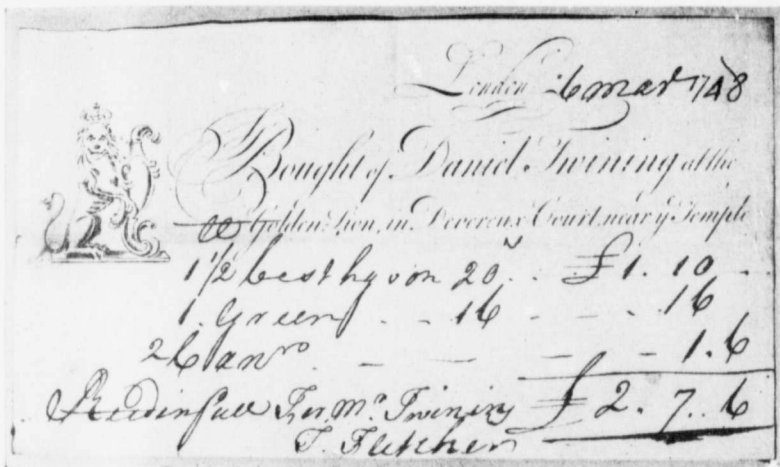 London 6 Mar 1748
Bought of Daniel Twining at the
Golden Lion, in Devereux Court near ye Temple
1 1/2 best hyson 20s - - £1. 10 -
1. Green - - 16 - - - 16
2 - - - - - 1. 6
Rec'd in full For Mr. Twining £ 2. 7. 6
T. Fletcher